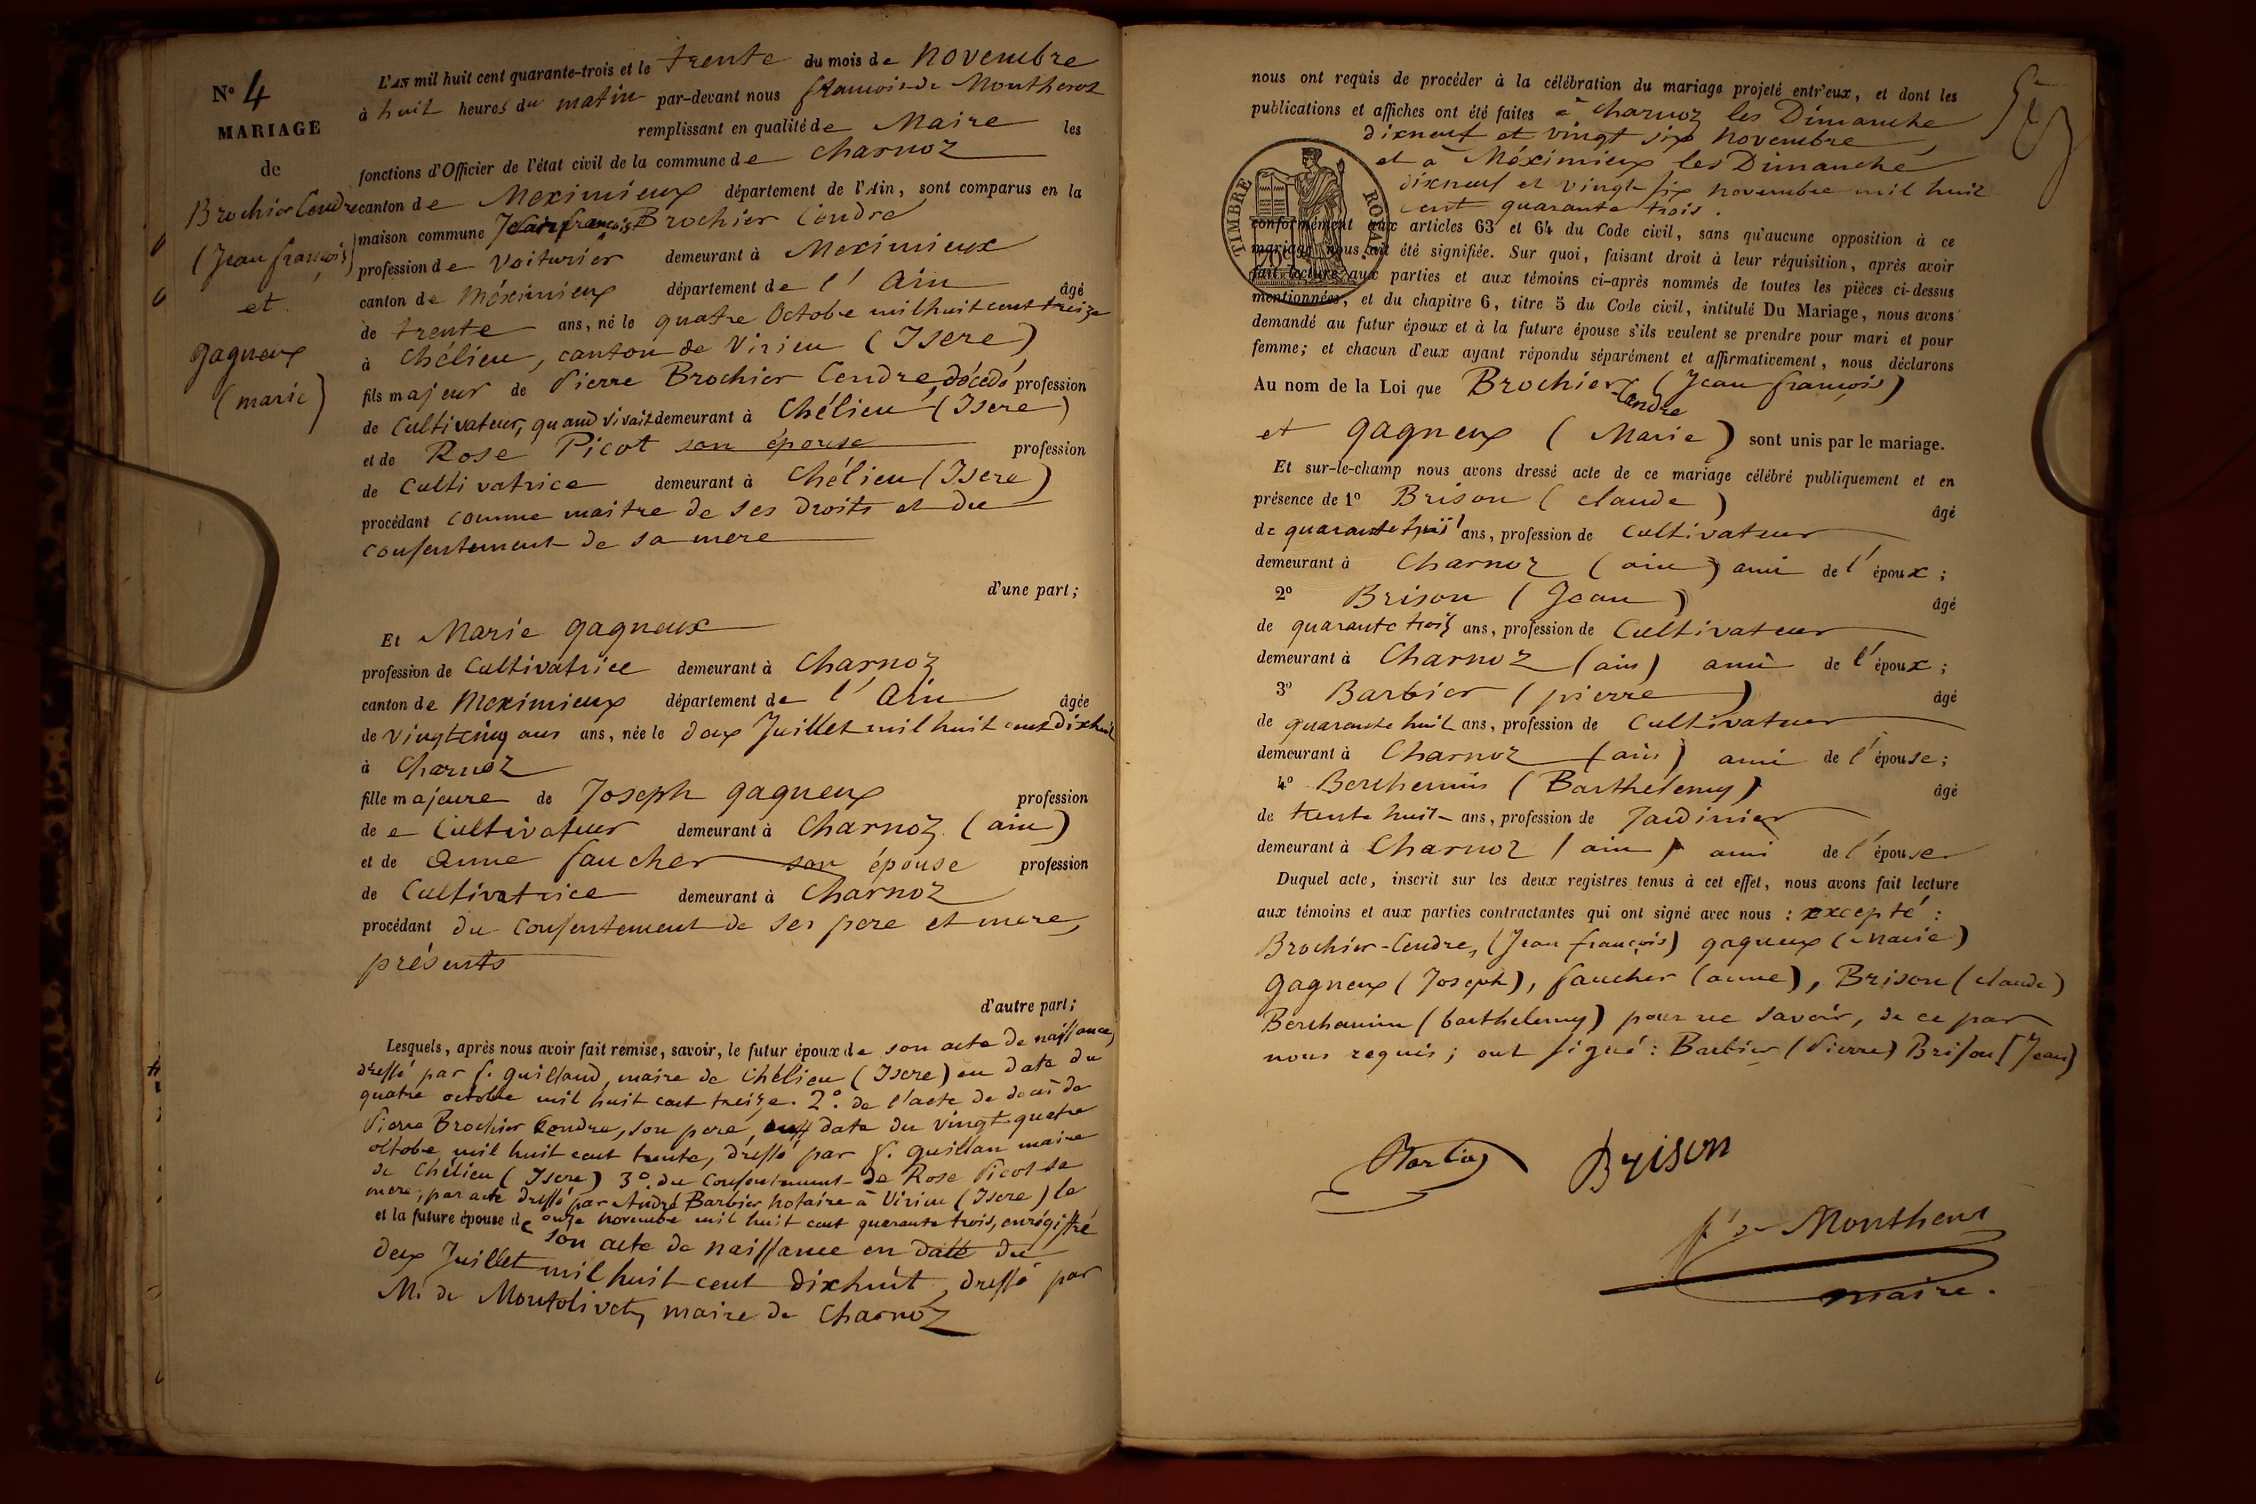 N° 4
MARIAGE
de
Brochier Cendre
(Jean françois)
et
gagneux
(marie)
L'AN mil huit cent quarante-trois et le trente du mois de novembre
à huit heures du matin par-devant nous françois de Montherot
remplissant en qualité de Maire les
fonctions d'Officier de l'état civil de la commune de Charnoz
canton de Meximieux département de l'Ain, sont comparus en la
maison commune Jean françois Brochier Cendre
profession de Voiturier demeurant à Meximieux
canton de Méximieux département de l'Ain âgé
de trente ans, né le quatre Octobre mil huit cent treize
à Chélieu, canton de Virieu (Isere)
fils majeur de Pierre Brochier Cendre, décédé profession
de Cultivateur, quand vivait demeurant à Chélieu (Isere)
et de Rose Picot son épouse profession
de Cultivatrice demeurant à Chélieu (Isere)
procédant comme maitre de ses droits et du
consentement de sa mere
d'une part;
Et Marie gagneux
profession de Cultivatrice demeurant à Charnoz
canton de Meximieux département de l'Ain âgée
de vingt cinq ans ans, née le deux Juillet mil huit cent dixhuit
à Charnoz
fille majeure de Joseph gagneux profession
de e Cultivateur demeurant à Charnoz (ain)
et de Anne faucher son épouse profession
de Cultivatrice demeurant à Charnoz
procédant du consentement de ses pere et mere,
présents
d'autre part;
Lesquels, après nous avoir fait remise, savoir, le futur époux de son acte de naissance,
dressé par f. guilland, maire de Chélieu (Isere) en date du
quatre octobre mil huit cent treize. 2°. de l'acte de décès de
Pierre Brochier Cendre, son pere, date du vingt quatre
octobre mil huit cent trente, dressé par f. guillan maire
de Chélieu (Isere) 3°. du consentement de Rose Picot sa
mere, par acte dressé par André Barbier, notaire à Virieu (Isere) le
onze novembre mil huit cent quarante trois, enrégistré
et la future épouse de son acte de naissance en date du
deux Juillet mil huit cent dixhuit, dressé par
M. de Montolivet, maire de Charnoz
nous ont requis de procéder à la célébration du mariage projeté entr'eux, et dont les
publications et affiches ont été faites à Charnoz les Dimanche
dixneuf et vingt six novembre,
et à Méximieux les Dimanche
dixneuf et vingt six novembre mil huit
cent quarante trois.
TIMBRE ROYAL
conformément aux articles 63 et 64 du Code civil, sans qu'aucune opposition à ce
mariage nous ait été signifiée. Sur quoi, faisant droit à leur réquisition, après avoir
fait lecture aux parties et aux témoins ci-après nommés de toutes les pièces ci-dessus
mentionnées, et du chapitre 6, titre 5 du Code civil, intitulé Du Mariage, nous avons
demandé au futur époux et à la future épouse s'ils veulent se prendre pour mari et pour
femme; et chacun d'eux ayant répondu séparément et affirmativement, nous déclarons
Au nom de la Loi que Brochier-Cendre (Jean françois)
et gagneux (Marie) sont unis par le mariage.
Et sur-le-champ nous avons dressé acte de ce mariage célébré publiquement et en
présence de 1° Brison (claude) âgé
de quarante trois ans, profession de Cultivateur
demeurant à Charnoz (ain) ami de l'époux;
2° Brison (Jean) âgé
de quarante trois ans, profession de Cultivateur
demeurant à Charnoz (ain) ami de l'époux;
3° Barbier (pierre) âgé
de quarante huit ans, profession de Cultivateur
demeurant à Charnoz (ain) ami de l'épouse;
4° Berchemin (Barthélemy) âgé
de trente huit ans, profession de Jardinier
demeurant à Charnoz (ain) ami de l'épouse
Duquel acte, inscrit sur les deux registres tenus à cet effet, nous avons fait lecture
aux témoins et aux parties contractantes qui ont signé avec nous : excepté :
Brochier-Cendre, (Jean françois) gagneux (marie)
gagneux (Joseph), faucher (anne), Brison (claude)
Berchemin (barthelemy) pour ne savoir, de ce par
nous requis; ont signé : Barbier (Pierre) Brison (Jean)
Brison
f. de Montherot
maire.